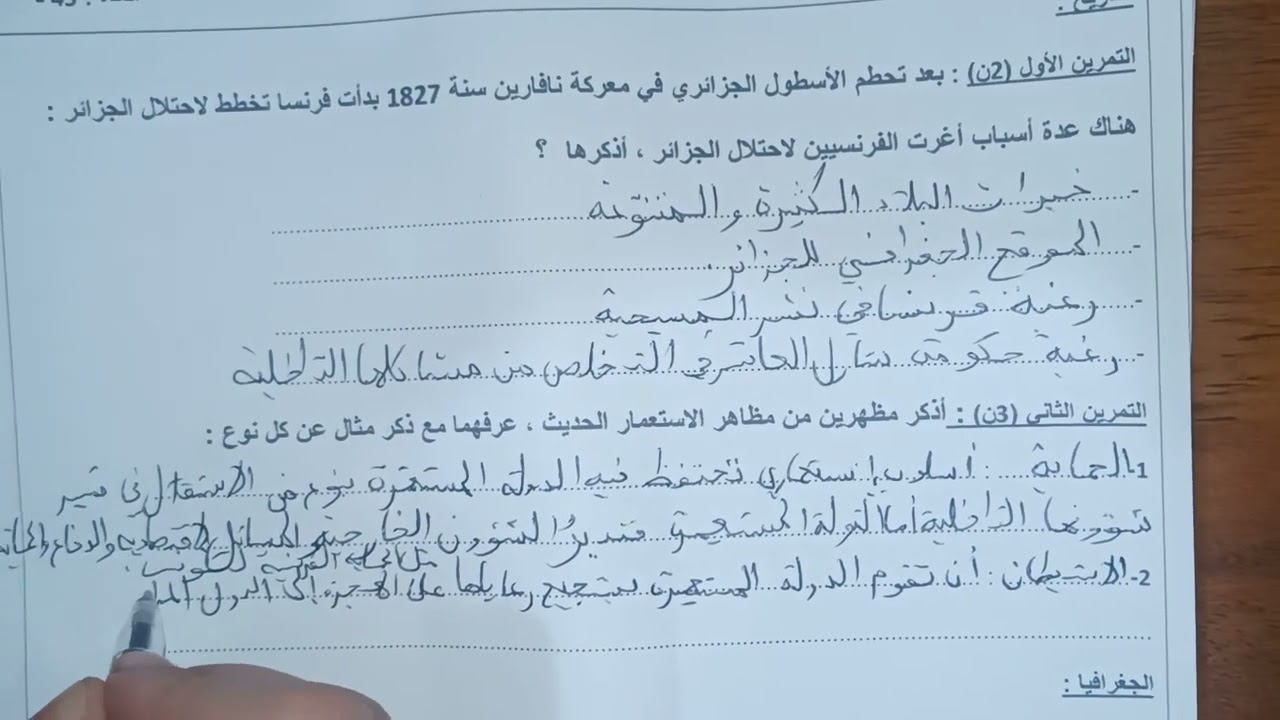 التمرين الأول (2ن) : بعد تحطم الأسطول الجزائري في معركة نافارين سنة 1827 بدأت فرنسا تخطط لاحتلال الجزائر :
هناك عدة أسباب أغرت الفرنسيين لاحتلال الجزائر ، أذكرها ؟
- خيرات البلاد الكثيرة والمتنوعة
- الموقع الجغرافي للجزائر
- رغبة فرنسا في نشر المسيحية
- رغبة حكومة شارل العاشر في التخلص من مشاكلها الداخلية
التمرين الثاني (3ن) : أذكر مظهرين من مظاهر الاستعمار الحديث ، عرفهما مع ذكر مثال عن كل نوع :
1- الحماية : أسلوب إستعماري تحتفظ فيه الدولة المستعمرة بنوع من الاستقلال في تسير
شؤونها الداخلية أما الدولة المستعمرة فتدير الشؤون الخارجية المسائل الاقتصادية والدفاع
مثل الحماية الفرنسية
2- الاستيطان : أن تقوم الدولة المستعمرة بتشجيع رعاياها على الهجرة إلى الدول
الجغرافيا :